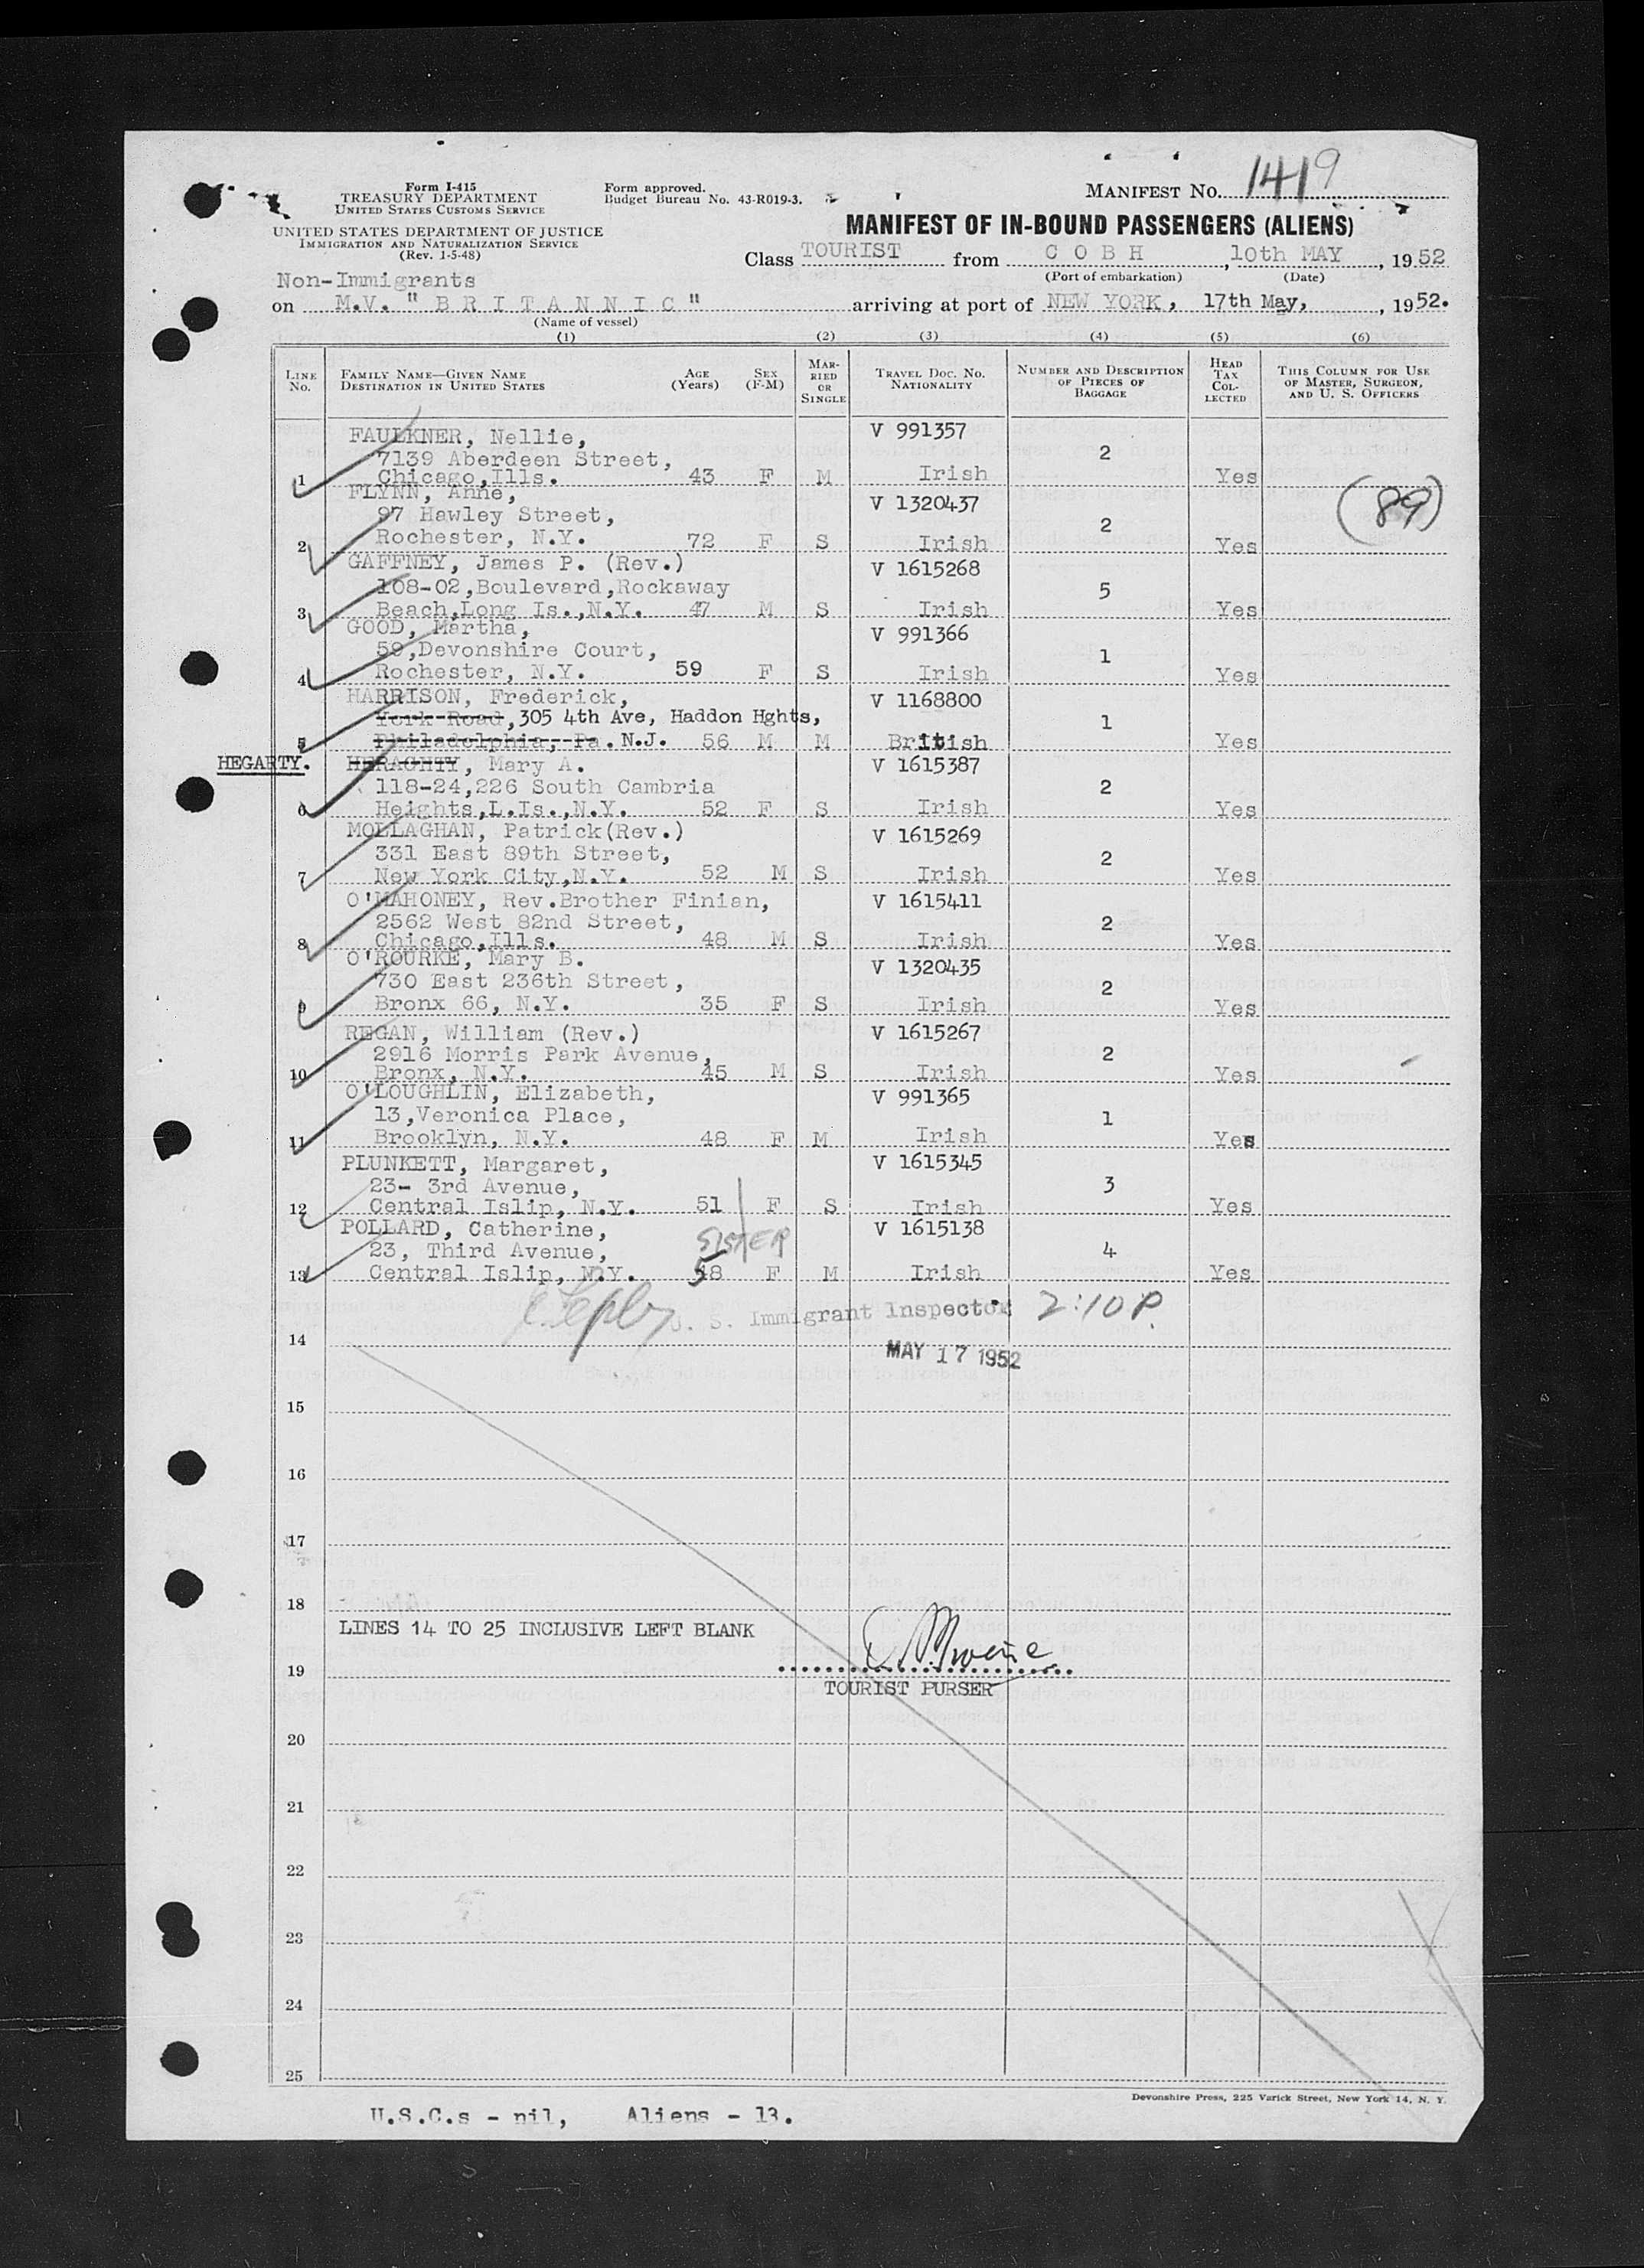 Form I-415
TREASURY DEPARTMENT
UNITED STATES CUSTOMS SERVICE
UNITED STATES DEPARTMENT OF JUSTICE
IMMIGRATION AND NATURALIZATION SERVICE
(Rev. 1-5-48)
Form approved.
Budget Bureau No. 43-R019-3.
MANIFEST NO. 1419
MANIFEST OF IN-BOUND PASSENGERS (ALIENS)
Class TOURIST from C O B H, 10th MAY, 1952
(Port of embarkation) (Date)
Non-Immigrants
on M.V. "B R I T A N N I C" arriving at port of NEW YORK, 17th May, , 1952.
(Name of vessel)
(1) (2) (3) (4) (5) (6)
LINE No. FAMILY NAME—GIVEN NAME DESTINATION IN UNITED STATES AGE (Years) SEX (F-M) MARRIED OR SINGLE TRAVEL DOC. NO. NATIONALITY NUMBER AND DESCRIPTION OF PIECES OF BAGGAGE HEAD TAX COLLECTED THIS COLUMN FOR USE OF MASTER, SURGEON, AND U. S. OFFICERS
FAULKNER, Nellie, V 991357
7139 Aberdeen Street, 2
1 Chicago,Ills. 43 F M Irish Yes
FLYNN, Anne, V 1320437 (89)
97 Hawley Street, 2
2 Rochester, N.Y. 72 F S Irish Yes
GAFFNEY, James P. (Rev.) V 1615268
108-02,Boulevard,Rockaway 5
3 Beach,Long Is.,N.Y. 47 M S Irish Yes
GOOD, Martha, V 991366
59,Devonshire Court, 1
4 Rochester, N.Y. 59 F S Irish Yes
HARRISON, Frederick, V 1168800
York Road,305 4th Ave, Haddon Hghts, 1
5 Philadelphia, Pa. N.J. 56 M M British Yes
HEGARTY. HERAGHTY, Mary A. V 1615387
118-24,226 South Cambria 2
6 Heights,L.Is.,N.Y. 52 F S Irish Yes
MOLLAGHAN, Patrick(Rev.) V 1615269
331 East 89th Street, 2
7 New York City,N.Y. 52 M S Irish Yes
O'MAHONEY, Rev.Brother Finian, V 1615411
2562 West 82nd Street, 2
8 Chicago,Ills. 48 M S Irish Yes
O'ROURKE, Mary B. V 1320435
730 East 236th Street, 2
9 Bronx 66, N.Y. 35 F S Irish Yes
REGAN, William (Rev.) V 1615267
2916 Morris Park Avenue, 2
10 Bronx, N.Y. 45 M S Irish Yes
O'LOUGHLIN, Elizabeth, V 991365
13,Veronica Place, 1
11 Brooklyn, N.Y. 48 F M Irish Yes
PLUNKETT, Margaret, V 1615345
23- 3rd Avenue, 3
12 Central Islip, N.Y. 51 F S Irish Yes
POLLARD, Catherine, SISTER V 1615138
23, Third Avenue, 4
13 Central Islip, N.Y. 58 F M Irish Yes
U. S. Immigrant Inspector 2:10 P.
14 MAY 17 1952
15
16
17
18
LINES 14 TO 25 INCLUSIVE LEFT BLANK
19
TOURIST PURSER
20
21
22
23
24
25
Devonshire Press, 225 Varick Street, New York 14, N. Y.
U.S.C.s - nil, Aliens - 13.